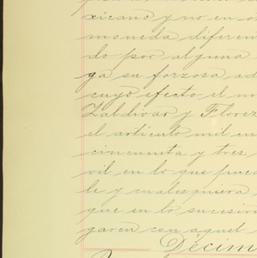 xicano y no en o
moneda diferen
do por alguna
ga su forzosa ad
cuyo efecto el
Zaldivar y Florez
el articulo mil
cincuenta y tres
vil en lo que pue
le y cualesquiera
que en lo sucesi
garen con aquel
Décim